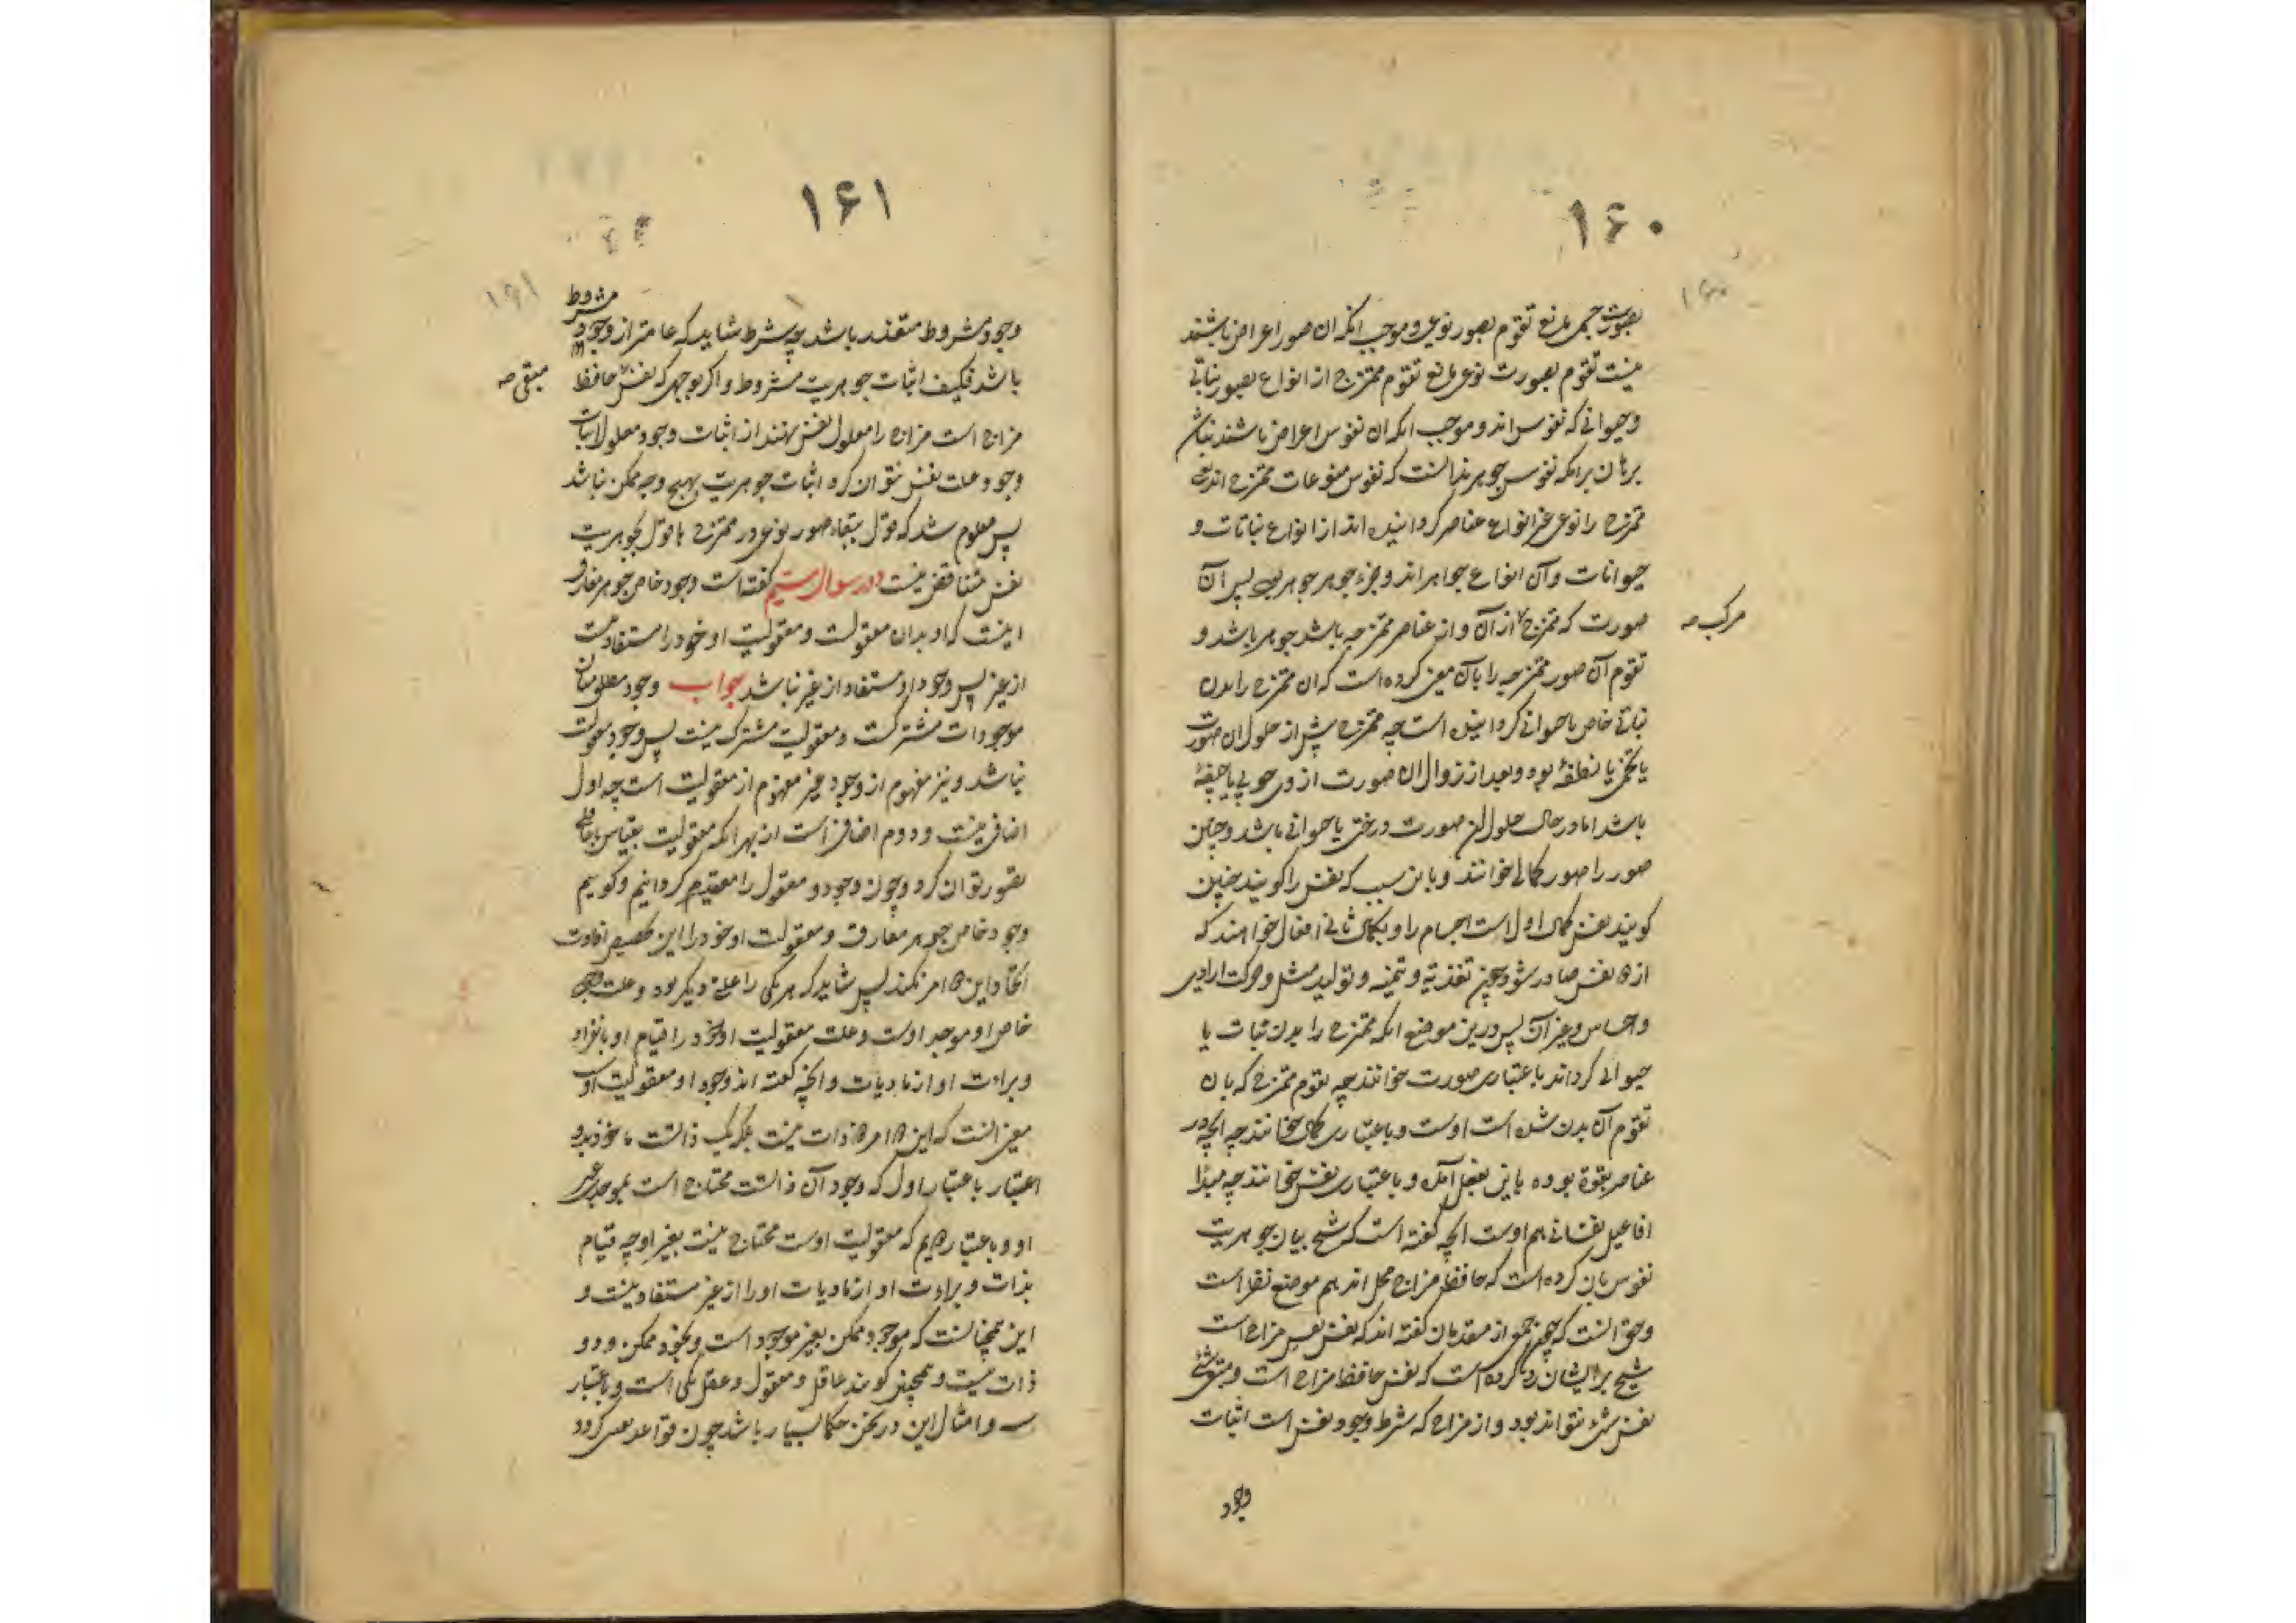 ۱۶۰
بصورت جسمی مانع تقوم بصور نوعی و موجب آنکه آن صور اعراض باشند
نیست تقوم بصورت نوعی مانع تقوم ممتزج از انواع بصور نباتی
و حیوانی که نفوس اند و موجب آنکه آن نفوس اعراض باشند نباشد
برهان برآنکه نفوس جوهرند آنست که نفوس منوعات ممتزج اند یعنی
ممتزج را نوعی غیر انواع عناصر گردانیده اند از انواع نباتات و
حیوانات و آن انواع جواهر اند و جزء جوهر جوهر بود پس آن
صورت که ممتزج از آن و از عناصر ممتزجه باشد جوهر باشد و
مرکب صه
تقوم آن صور ممتزجه را بآن معنی کرده است که آن ممتزج را بدن
نباتی خاص یا حیوانی گردانیده است چه ممتزج پیش از حلول آن صورت
یا تخمی یا نطفهٔ بود و بعد از زوال آن صورت از وی چوبی یا جیفهٔ
باشد اما در حال حلول آن صورت درختی یا حیوانی باشد و چنین
صور را صور کمالی خوانند و باین سبب که نفس را گویند چنین
گویند نفس کمال اول است اجسام را و بکمال ثانی افعال خواهند که
از نفس صادر شود چون تغذیه و تنمیه و تولید مثل و حرکت ارادی
و احساس و غیر آن پس درین موضع آنکه ممتزج را بدن نبات یا
حیوانی گرداند باعتباری صورت خوانند چه تقوم ممتزج که بآن
تقوم آن بدن شده است اوست و باعتباری کمال خوانند چه آنچه در
عناصر بقوة بوده باین بفعل آمده و باعتباری نفس خوانند چه مبدأ
افاعیل نفسانی هم اوست آنچه گفته است که شیخ بیان جوهریت
نفوس بآن کرده است که حافظ مزاج محل اند هم موضع نظر است
و حق آنست که چون جمعی از متقدمان گفته اند که نفس نفس مزاج است
شیخ بر ایشان رد کرده است که نفس حافظ مزاج است و مبقی شئ
نفس شئ نتواند بود و از مزاج که شرط وجود نفس است اثبات
وجود
۱۶۱
مشروط
وجود مشروط متعذر باشد چه شرط شاید که عامتر از وجود
باشد فکیف اثبات جوهریت مشروط و اگر بوجهی که نفس حافظ
مبقی صه
مزاج است مزاج را معلول نفس نهند از اثبات وجود معلول اثبات
وجود علت نفس نتوان کرد اثبات جوهریت بهیچ وجه ممکن نباشد
پس معلوم شد که قول ببقاء صور نوعی در ممتزج با قول بجوهریت
نفس متناقض نیست در سوال بیستم گفته است وجود خاص جوهر مفارق
اینست که او بدان معقولست و معقولیت او خود را مستفاد نیست
از غیر پس وجود او مستفاد از غیر نباشد جواب وجود مطلق میان
موجودات مشترکست و معقولیت مشترک نیست پس وجود معقولیت
نباشد و نیز مفهوم از وجود غیر مفهوم از معقولیت است چه اول
اضافی نیست و دوم اضافی است از بهر آنکه معقولیت بقیاس با عاقلی
تصور توان کرد و چون وجود و معقول را مقید گردانیم و گوییم
وجود خاص جوهر مفارق و معقولیت او خود را این تخصیص افادت
اتحاد این امر نکند پس شاید که هر یکی را علتی دیگر بود و علت وجود
خاص او موجد اوست و علت معقولیت او خود را قیام او بانفراد
و براءت او از مادیات و آنچه گفته اند وجود او معقولیت اوست
معنی آنست که این دو امر دو ذات نیست بلکه یک ذاتست ماخوذ بدو
اعتبار باعتبار اول که وجود آن ذاتست محتاج است بموجدی غیر
او و باعتبار دویم که معقولیت اوست محتاج نیست بغیر او چه قیام
بذات و براءت او از مادیات او را از غیر مستفاد نیست و
این همچنانست که موجود ممکن بغیر موجود است و بخود ممکن و دو
ذات نیست و همچنین گویند عاقل و معقول و عقل یکی است و باعتبار
سه و امثال این در سخن حکما بسیار باشد چون قواعد